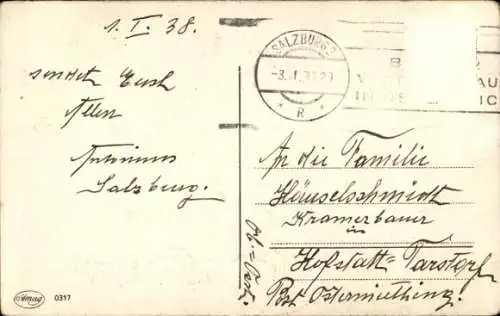 1. I. 38.
sendet Euch
Allen
Antonimus
Salzburg.
SALZBURG 2
-3. I. 38 20
* R *
B
V AU
IN ÖS ICH
An die Familie
Häuselschmidt
Kramerbauer
in
Hofstatt = Tarstorf
Post Ostermiething.
Ob. = Öst.
Amag 0317